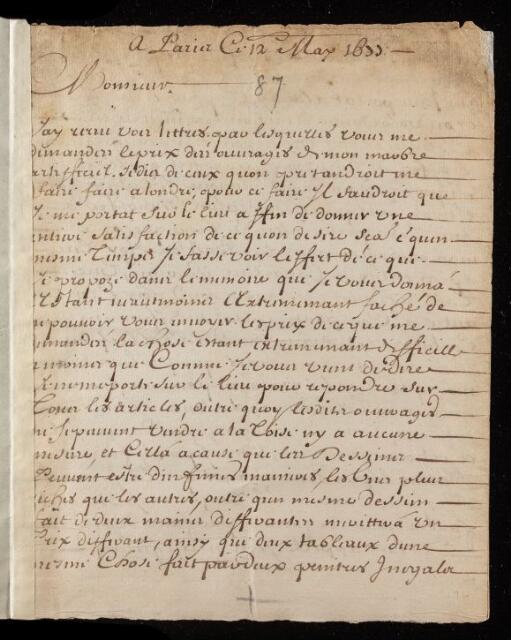 A Paris Ce 12 May 1633
Monsieur
87
Jay receu voir lettres par lesquelles vous me
demandez le prix des ouvrages de mon marbre
artifficiel. Jedis de ceux quon pretandroit me
faire faire a londre, pour ce faire Jl faudroit que
Je me portat sur le lieu a ffin de donner une
entiere satisfaction de ce quon desire
mesme temps Je fasse voir leffet de ce que
Je propoze dans le memoire que Je vous donna
Estant neaumoins Extremement faché de
ne pouvoir vous envoyer les prix de ce que me
demandez la chose estant extremement difficille
a moins que Comme Je vous viens de dire
Je ne me porte sur le lieu pour repondre sur
tous les articles, outre quoy lesdits ouvrages
ne se peuvent vendre a la toise ny a aucune
mesure, et Cella a cause que les Desseins
Peuvent estre dinfinies manieres, les uns plus
riches que les autres, outre quun mesme dessin
fait de deux mains differantes meritera un
Prix differant, ainsy que deux tableaux dune
mesme Chose fait par deux peintres Inegales